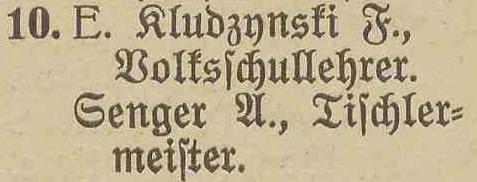 10. E. Kludzynski F.,
Volksſchullehrer.
Senger A., Tiſchler-
meiſter.